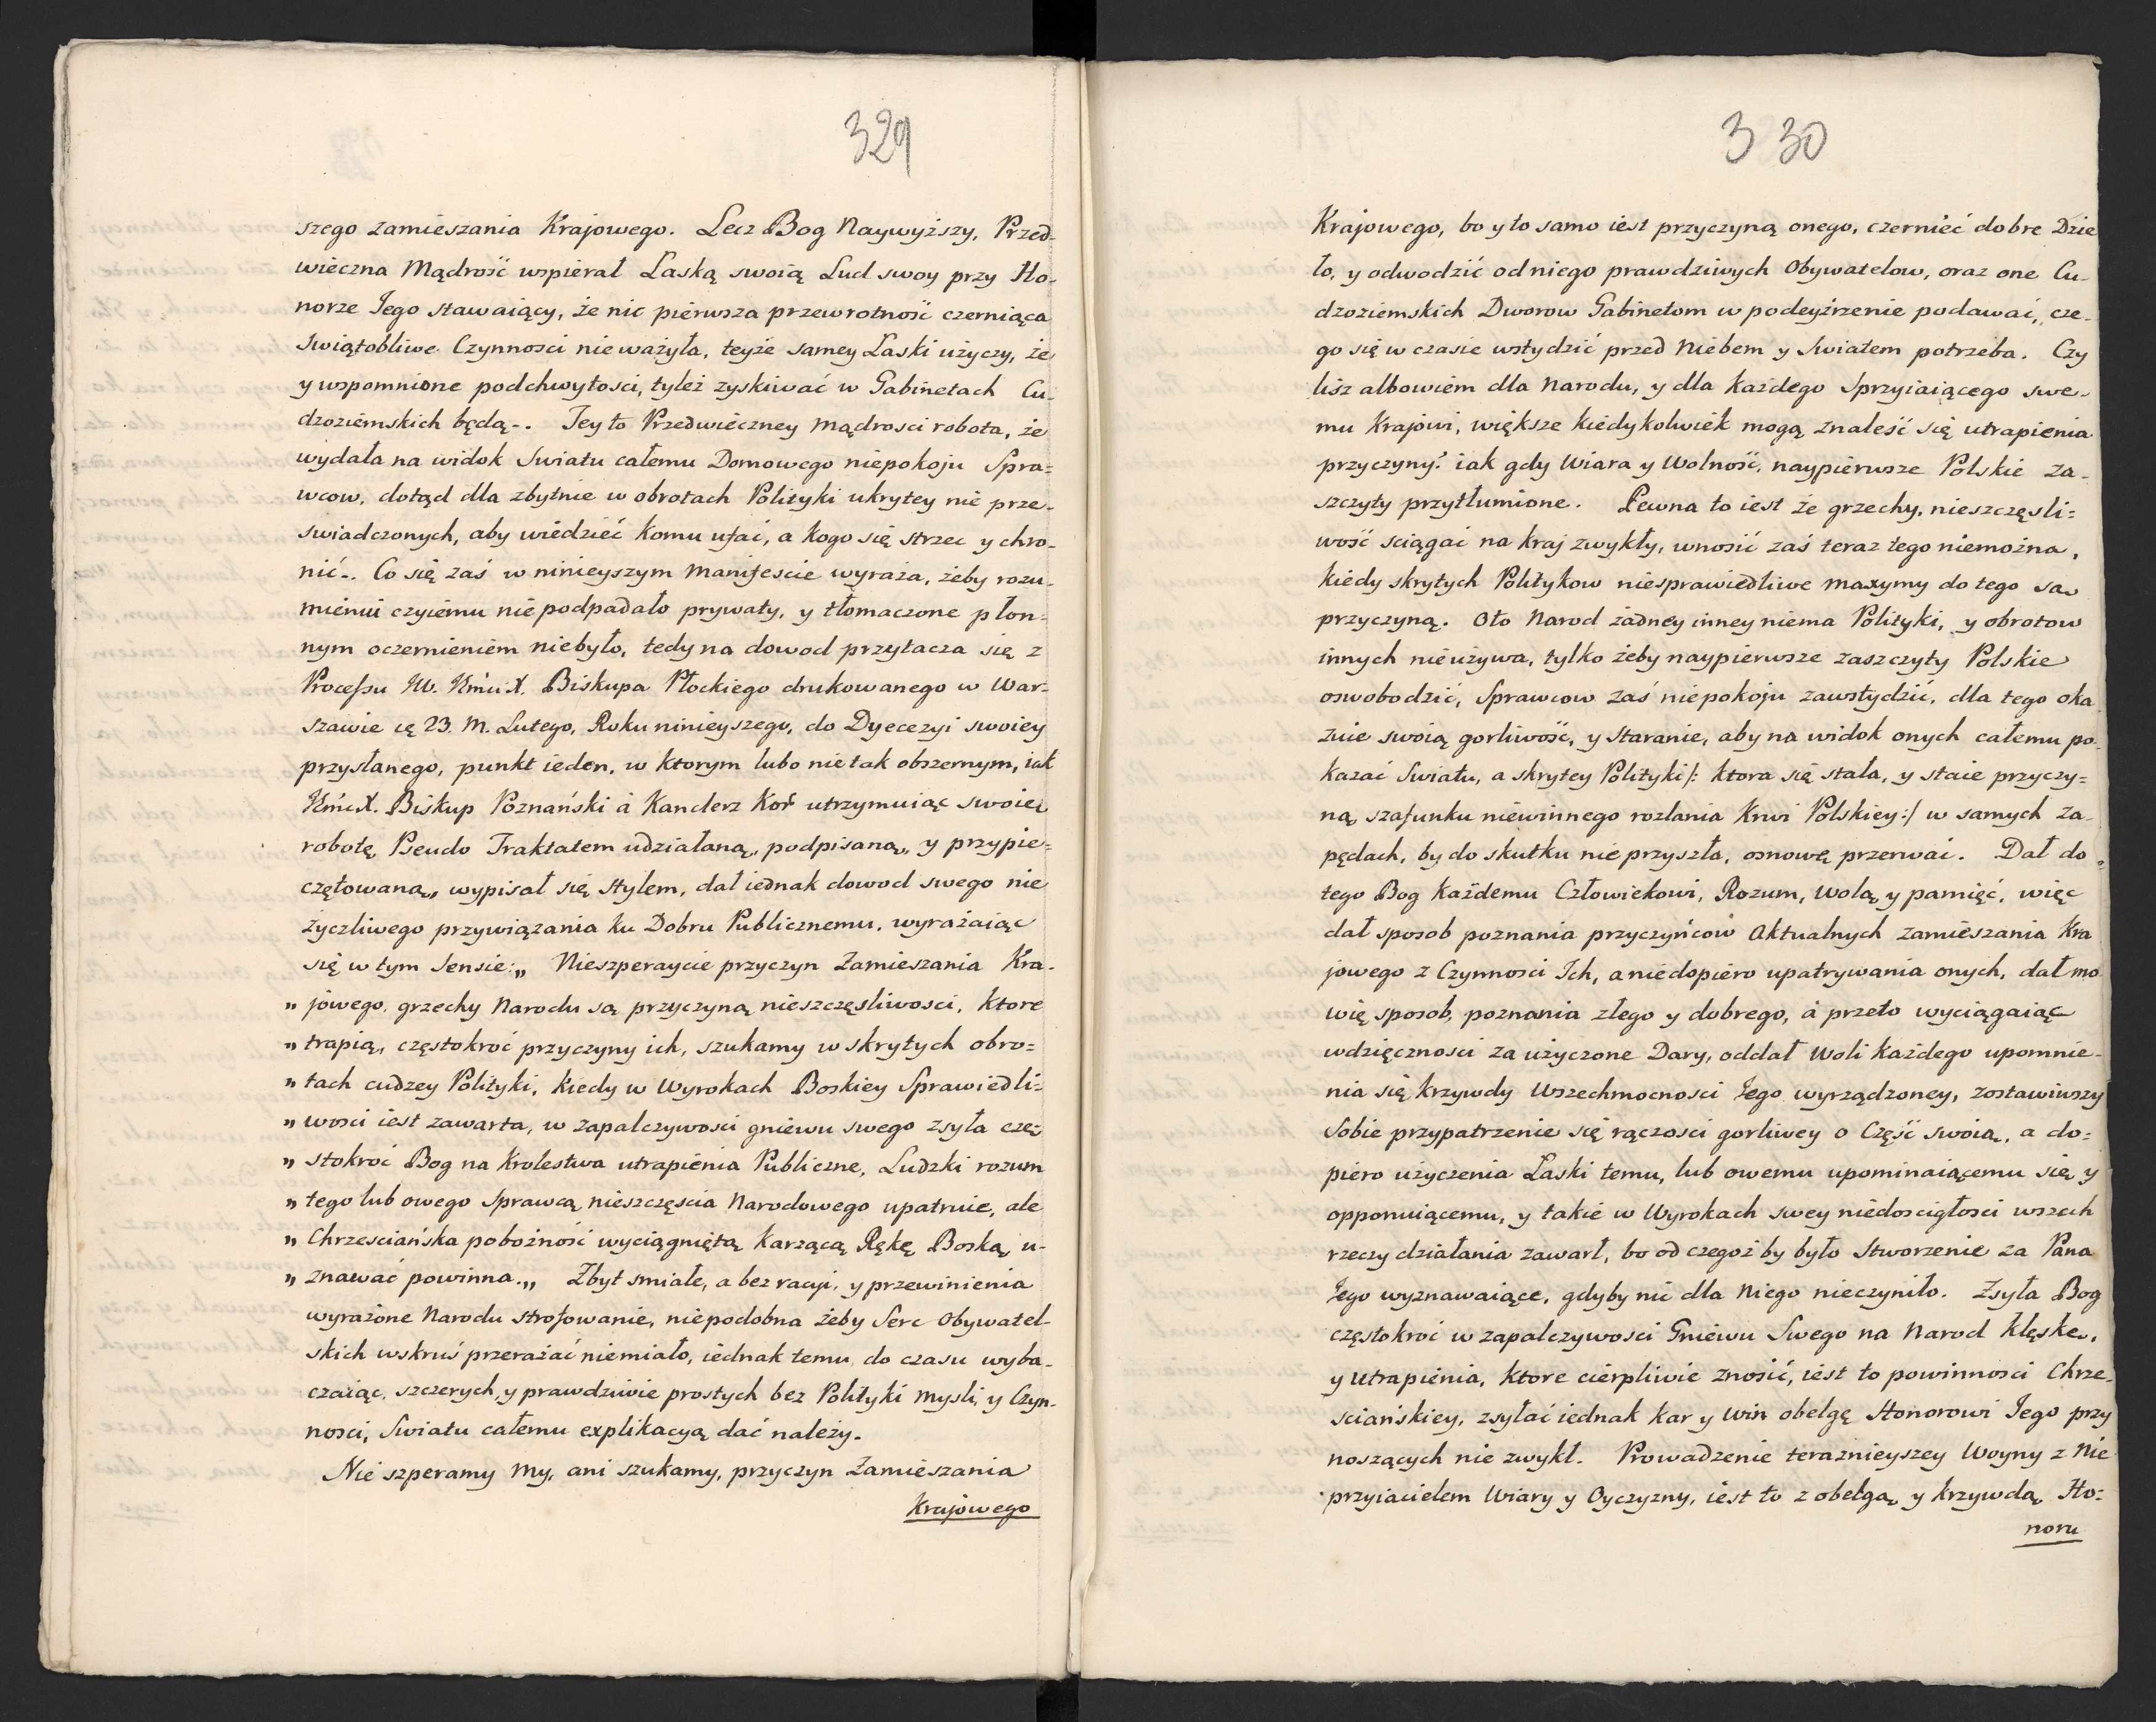 329
szego zamieszania Krajowego. Lecz Bog Naywyższy, Przed-
wieczna Mądrość wspierał Łaską swoią Lud swoy przy Ho-
norze Jego stawaiący, że nic pierwsza przewrotność czerniąca
Swiątobliwe Czynnosci nie ważyła, teyże samey Łaski użyczy, że
y wspomnione podchwytosci, tyleż zyskiwać w Gabinetach Cu-
dzoziemskich będą-. Jey to Przedwieczney Mądrosci robota, że
wydała na widok Swiatu całemu Domowego niepokoju Spra=
wcow, dotąd dla zbytnie w obrotach Polityki ukrytey nie prze-
swiadczonych, aby wiedzieć komu ufać, a kogo się strzec y chro-
nić-. Co się zaś w ninieyszym Manifescie wyraża, żeby rozu-
mieniu czyiemu nie podpadało prywaty, y tłomaczone płon-
nym oczernieniem niebyło, tedy na dowod przytacza się z
Processu JW. Jmći X. Biskupa Płockiego drukowanego w War-
szawie 23. M. Lutego, Roku ninieyszego, do Dyecezyi swoiey
przysłanego, punkt ieden, w ktorym lubo nie tak obszernym, iak
Jmć X. Biskup Poznański á Kanclerz Kor utrzymuiąc swoię
robotę Pseudo Traktatem udziałaną, podpisaną, y przypie=
czętowaną, wypisał się stylem, dał iednak dowod swego nie
życzliwego przywiązania ku Dobru Publicznemu, wyrażaiąc
się w tym Sensie: „ Nieszperaycie przyczyn Zamieszania Kra-
„ jowego, grzechy Narodu są przyczyną nieszczęsliwosci, ktore
„ trapią, częstokroć przyczyny ich, szukamy w skrytych obro=
„ tach cudzey Polityki, kiedy w Wyrokach Boskiey Sprawiedli=
„ wosci iest zawarta, w zapalczywosci gniewu swego zsyła czę=
„ stokroć Bog na Krolestwa utrapienia Publiczne, Ludzki rozum
„ tego lub owego Sprawcą nieszczęscia Narodowego upatruie, ale
„ Chrzesciańska pobożność wyciągniętą karzącą Rękę Boską u-
„ znawać powinna. „ Zbyt smiałe, a bez racyi, y przewinienia
wyrażone Narodu strofowanie, niepodobna żeby Serc Obywatel-
skich wskruś przerażać niemiało, iednak temu do czasu wyba-
czaiąc, szczerych, y prawdziwie prostych bez Polityki Mysli, y Czyn-
nosci, Swiatu całemu explikacyą dać należy.
Nie szperamy My, ani szukamy, przyczyn Zamieszania
Krajowego
330
Krajowego, bo y to samo iest przyczyną onego, czernieć dobre Dzie
ło, y odwodzić od niego prawdziwych Obywatelow, oraz one Cu-
dzoziemskich Dworow Gabinetom w podeyźrzenie podawać, cze-
go się w czasie wstydzić przed Niebem y Swiatem potrzeba. Czy
lisz albowiem dla Narodu, y dla każdego Sprzyiaiącego swe-
mu Krajowi, większe kiedykolwiek mogą znaleść się utrapienia
przyczyny? iak gdy Wiara y Wolność, naypierwsze Polskie Za-
szczyty przytłumione. Pewna to iest że grzechy, nieszczęsli=
wość sciągać na kraj zwykły, wnosić zaś teraz tego niemożna,
kiedy skrytych Politykow niesprawiedliwe maxymy do tego są
przyczyną. Oto Narod żadney inney niema Polityki, y obrotow
innych nieużywa, tylko żeby naypierwsze zaszczyty Polskie
oswobodzic, Sprawcow zaś niepokoju zawstydzić, dla tego oka
zuie swoią gorliwość, y staranie, aby na widok onych całemu po-
kazać Swiatu, a skrytey Polityki /: ktora się stała, y staie przyczy=
ną szafunku niewinnego rozlania Krwi Polskiey :/ w samych Za-
pędach, by do skutku nie przyszła, osnowę przerwać. Dał do
tego Bog każdemu Człowiekowi, Rozum, Wolą y pamięć, więc
dał sposob poznania przyczyńcow Aktualnych zamieszania Kra
jowego z Czynnosci Ich, a niedopiero upatrywania onych, dał mo
wię sposob, poznania złego y dobrego, á przeto wyciągaiąc
wdzięcznosci za użyczone Dary, oddał Woli każdego upomnie-
nia się krzywdy Wszechmocnosci Jego wyrządzoney, zostawiwszy
Sobie przypatrzenie się rączosci gorliwey o Cześć swoią, a do=
piero użyczenia Łaski temu, lub owemu upominaiącemu się, y
opponuiącemu, y takie w Wyrokach swey niedoscigłosci wszech
rzeczy działania zawarł, bo od czegoż by było Stworzenie za Pana
Jego wyznawaiące, gdyby nic dla Niego nieczyniło. Zsyła Bog
częstokroć w zapalczywosci Gniewu Swego na Narod klęskę,
y Utrapienia, ktore cierpliwie znosić, iest to powinnosci Chrze-
sciańskiey, zsyłać iednak kar y win obelgę Honorowi Jego przy
noszących nie zwykł. Prowadzenie teraznieyszey Woyny z Nie
przyiacielem Wiary y Oyczyzny, iest to z obelgą y krzywdą Ho=
noru